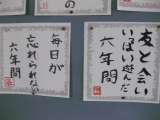 友と会い
いっぱい遊んだ
六年間
毎日が
忘れられない
六年間
の